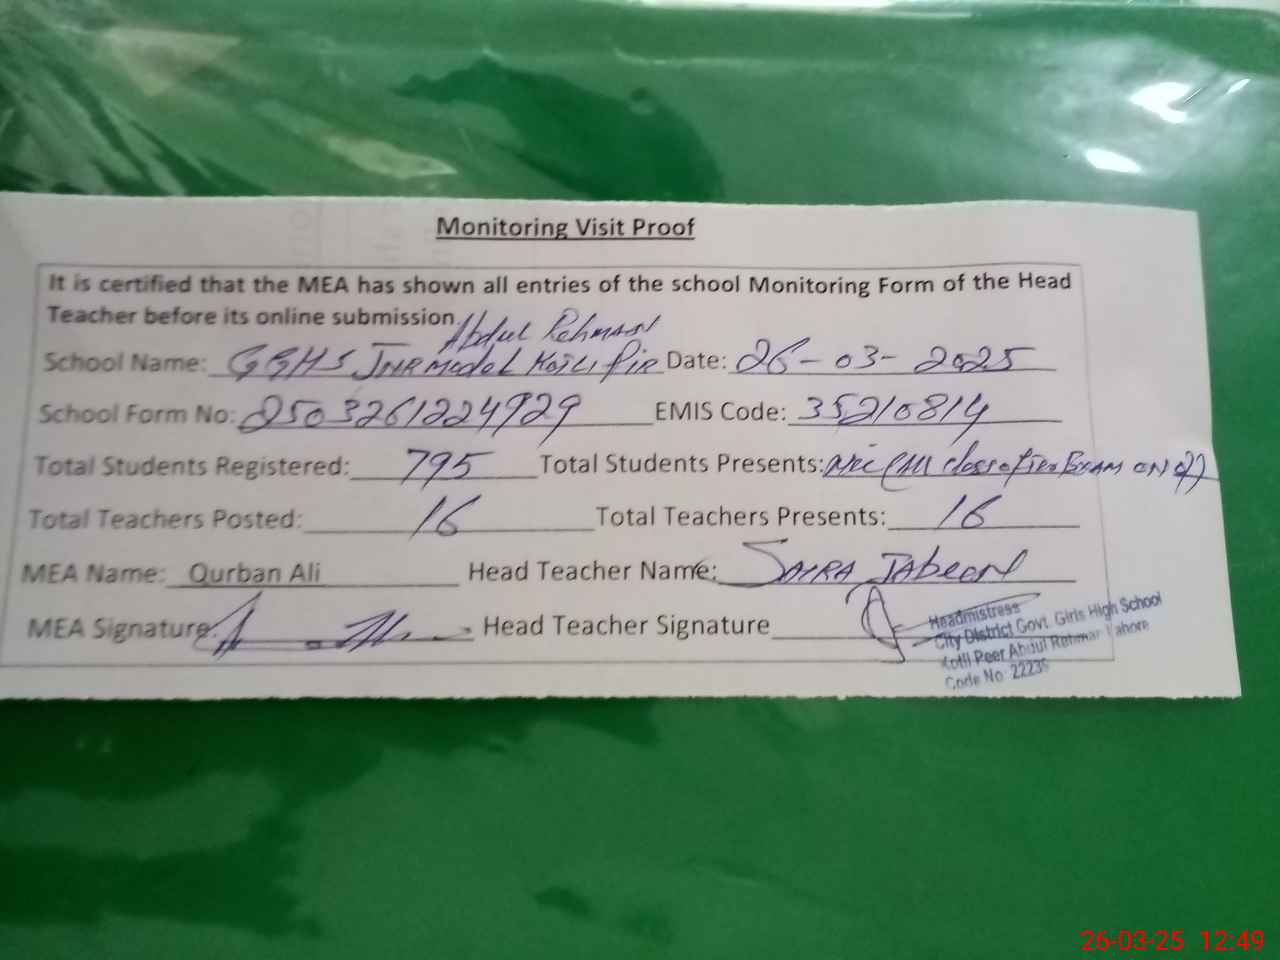 Monitoring Visit Proof
It is certified that the MEA has shown all entries of the school Monitoring Form of the Head
Teacher before its online submission.
Abdul Rehman
School Name: GGHS JNR Model Kotli Pir Date: 26-03-2025
School Form No: 2503261224929 EMIS Code: 35210814
Total Students Registered: 795 Total Students Presents: (All class after Exam on
Total Teachers Posted: 16 Total Teachers Presents: 16
MEA Name: Qurban Ali Head Teacher Name: SAIRA JAbeen
MEA Signature: Head Teacher Signature
Headmistress
City District Govt. Girls High School
Kotli Peer Abdul Rehman Lahore
Code No: 22235
26-03-25 12:49